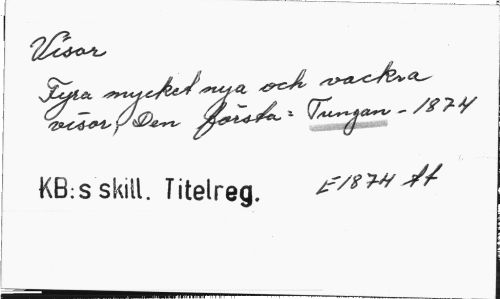 Visor
Fyra mycket nya och vackra
visor, Den första: Tungan - 1874
KB:s skill. Titelreg.
E1874 ff